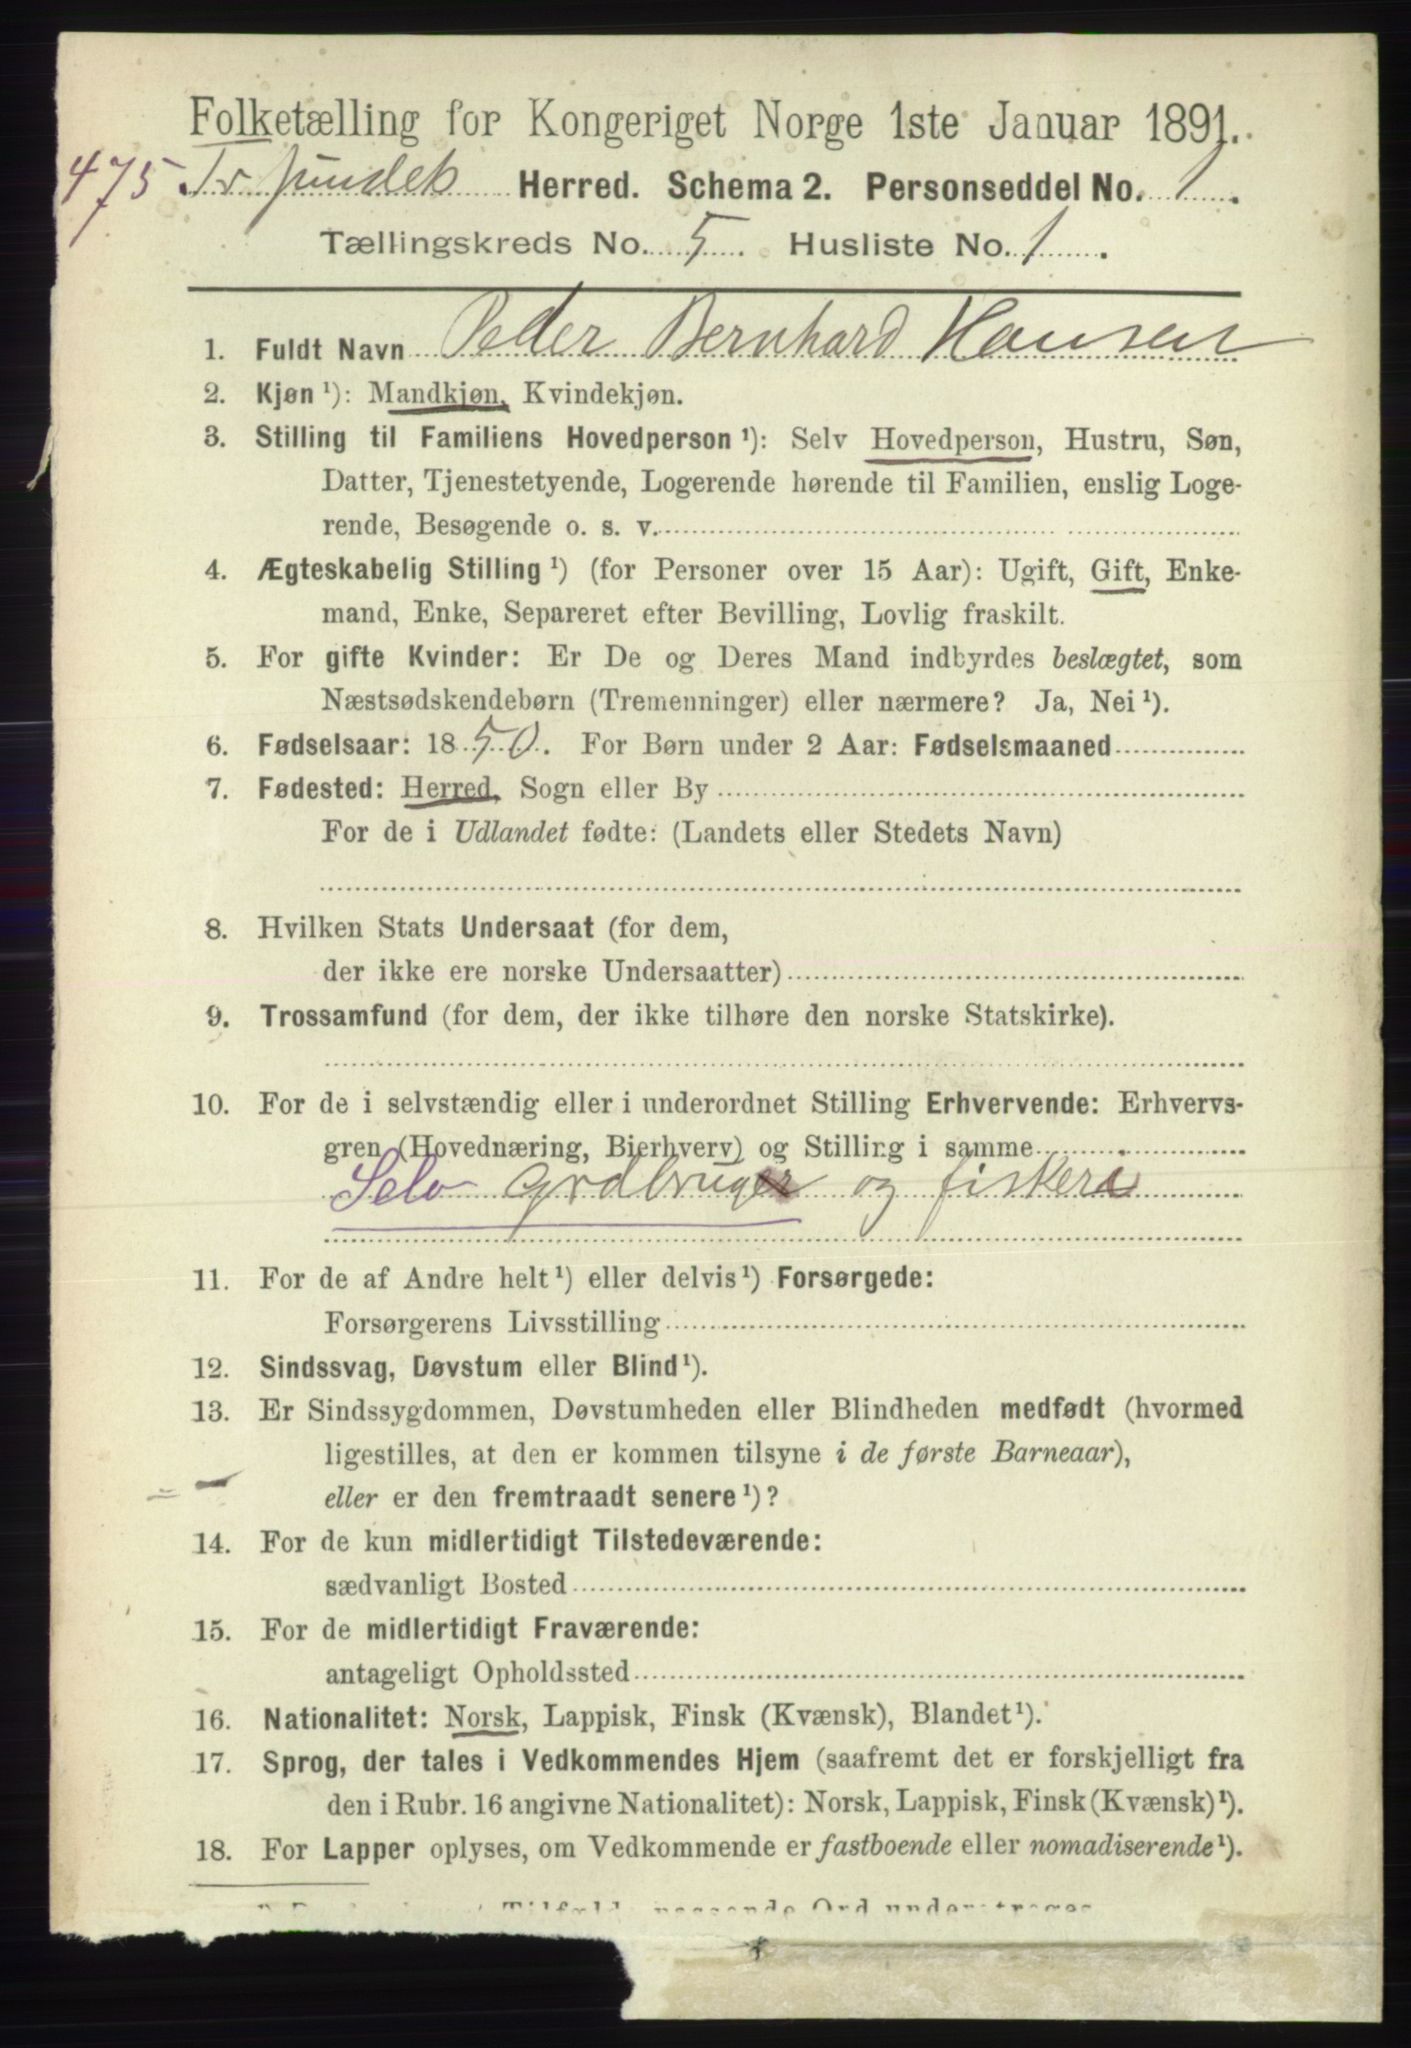 Folketælling for Kongeriget Norge 1ste Januar 1891.
475. Herred. Schema 2. Personseddel No. 1.
Tællingskreds No. 5. Husliste No. 1.
1. Fuldt Navn Peder Bernhard Hansen
2. Kjøn¹): Mandkjøn, Kvindekjøn.
3. Stilling til Familiens Hovedperson¹): Selv Hovedperson, Hustru, Søn,
Datter, Tjenestetyende, Logerende hørende til Familien, enslig Loge-
rende, Besøgende o. s. v.
4. Ægteskabelig Stilling¹) (for Personer over 15 Aar): Ugift, Gift, Enke-
mand, Enke, Separeret efter Bevilling, Lovlig fraskilt.
5. For gifte Kvinder: Er De og Deres Mand indbyrdes beslægtet, som
Næstsødskendebørn (Tremenninger) eller nærmere? Ja, Nei¹).
6. Fødselsaar: 1850. For Børn under 2 Aar: Fødselsmaaned
7. Fødested: Herred, Sogn eller By
For de i Udlandet fødte: (Landets eller Stedets Navn)
8. Hvilken Stats Undersaat (for dem,
der ikke ere norske Undersaatter)
9. Trossamfund (for dem, der ikke tilhøre den norske Statskirke).
10. For de i selvstændig eller i underordnet Stilling Erhvervende: Erhvervs-
gren (Hovednæring, Bierhverv) og Stilling i samme
Selv grdbruger og fiskeri
11. For de af Andre helt¹) eller delvis¹) Forsørgede:
Forsørgerens Livsstilling
12. Sindssvag, Døvstum eller Blind¹).
13. Er Sindssygdommen, Døvstumheden eller Blindheden medfødt (hvormed
ligestilles, at den er kommen tilsyne i de første Barneaar),
eller er den fremtraadt senere¹)?
14. For de kun midlertidigt Tilstedeværende:
sædvanligt Bosted
15. For de midlertidigt Fraværende:
antageligt Opholdssted
16. Nationalitet: Norsk, Lappisk, Finsk (Kvænsk), Blandet¹).
17. Sprog, der tales i Vedkommendes Hjem (saafremt det er forskjelligt fra
den i Rubr. 16 angivne Nationalitet): Norsk, Lappisk, Finsk (Kvænsk)¹).
18. For Lapper oplyses, om Vedkommende er fastboende eller nomadiserende¹).